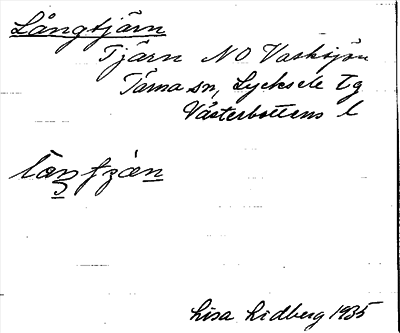 Långtjärn
Tjärn NO Vasksjön
Tärna sn, Lycksele tg
Västerbottens l
Lisa Lidberg 1935